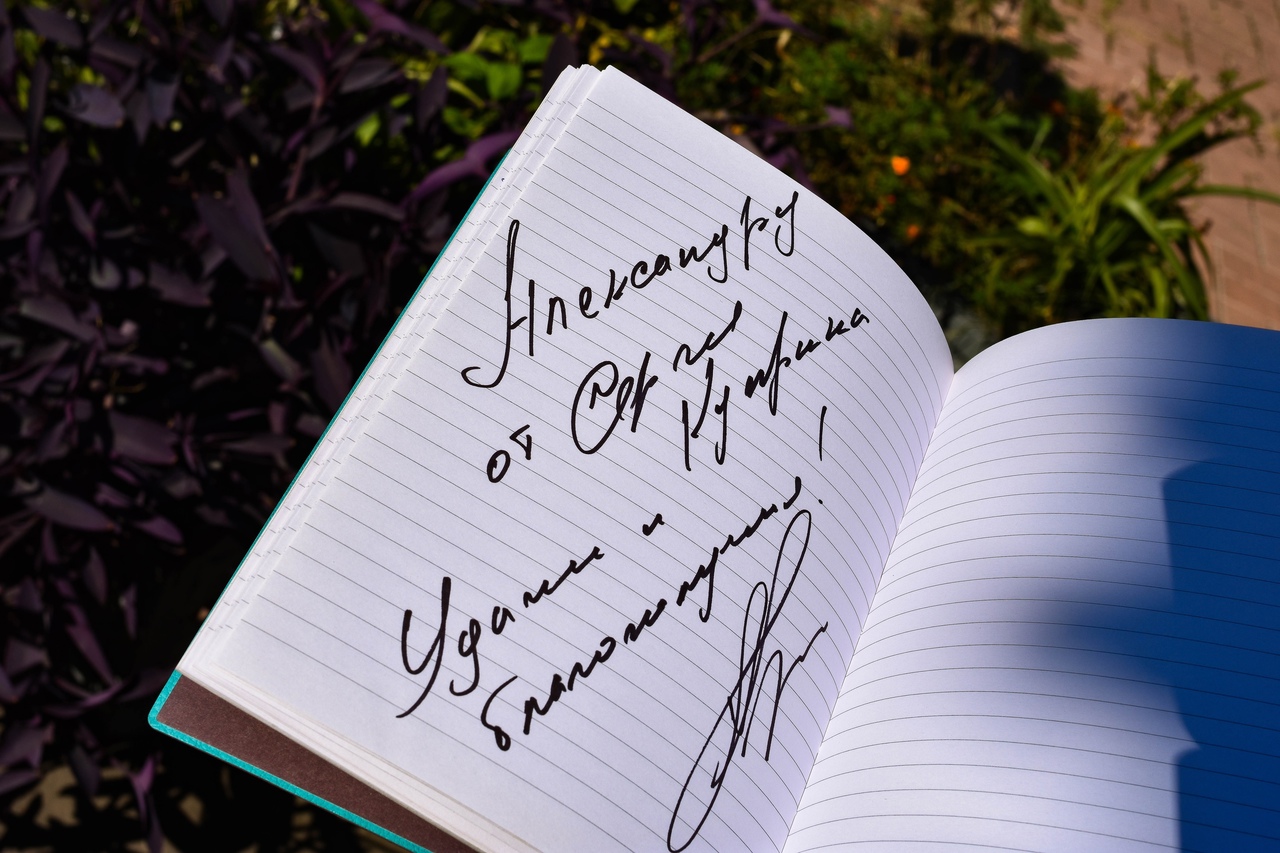 Александру
от Сергея
Куприка
Удачи и
благополучия!